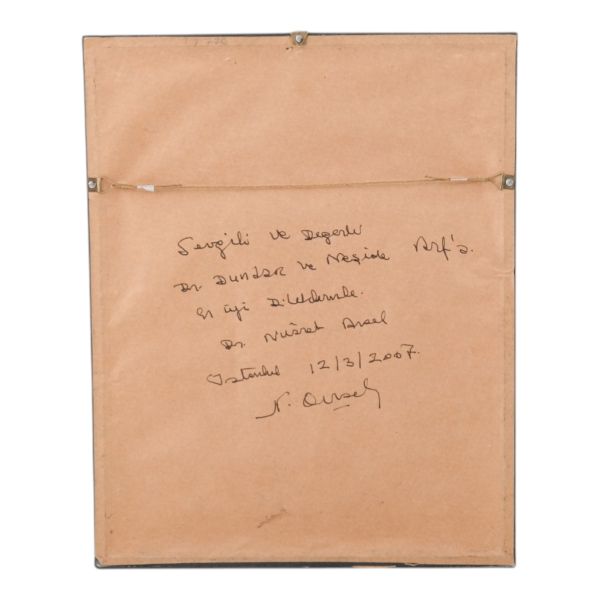 Sevgili ve Değerli
Dr. Dundar ve Neşide Arf'a.
En iyi Dileklerimle.
Dr. Nusret Arsel
Istanbul 12/3/2007.
N. Arsel